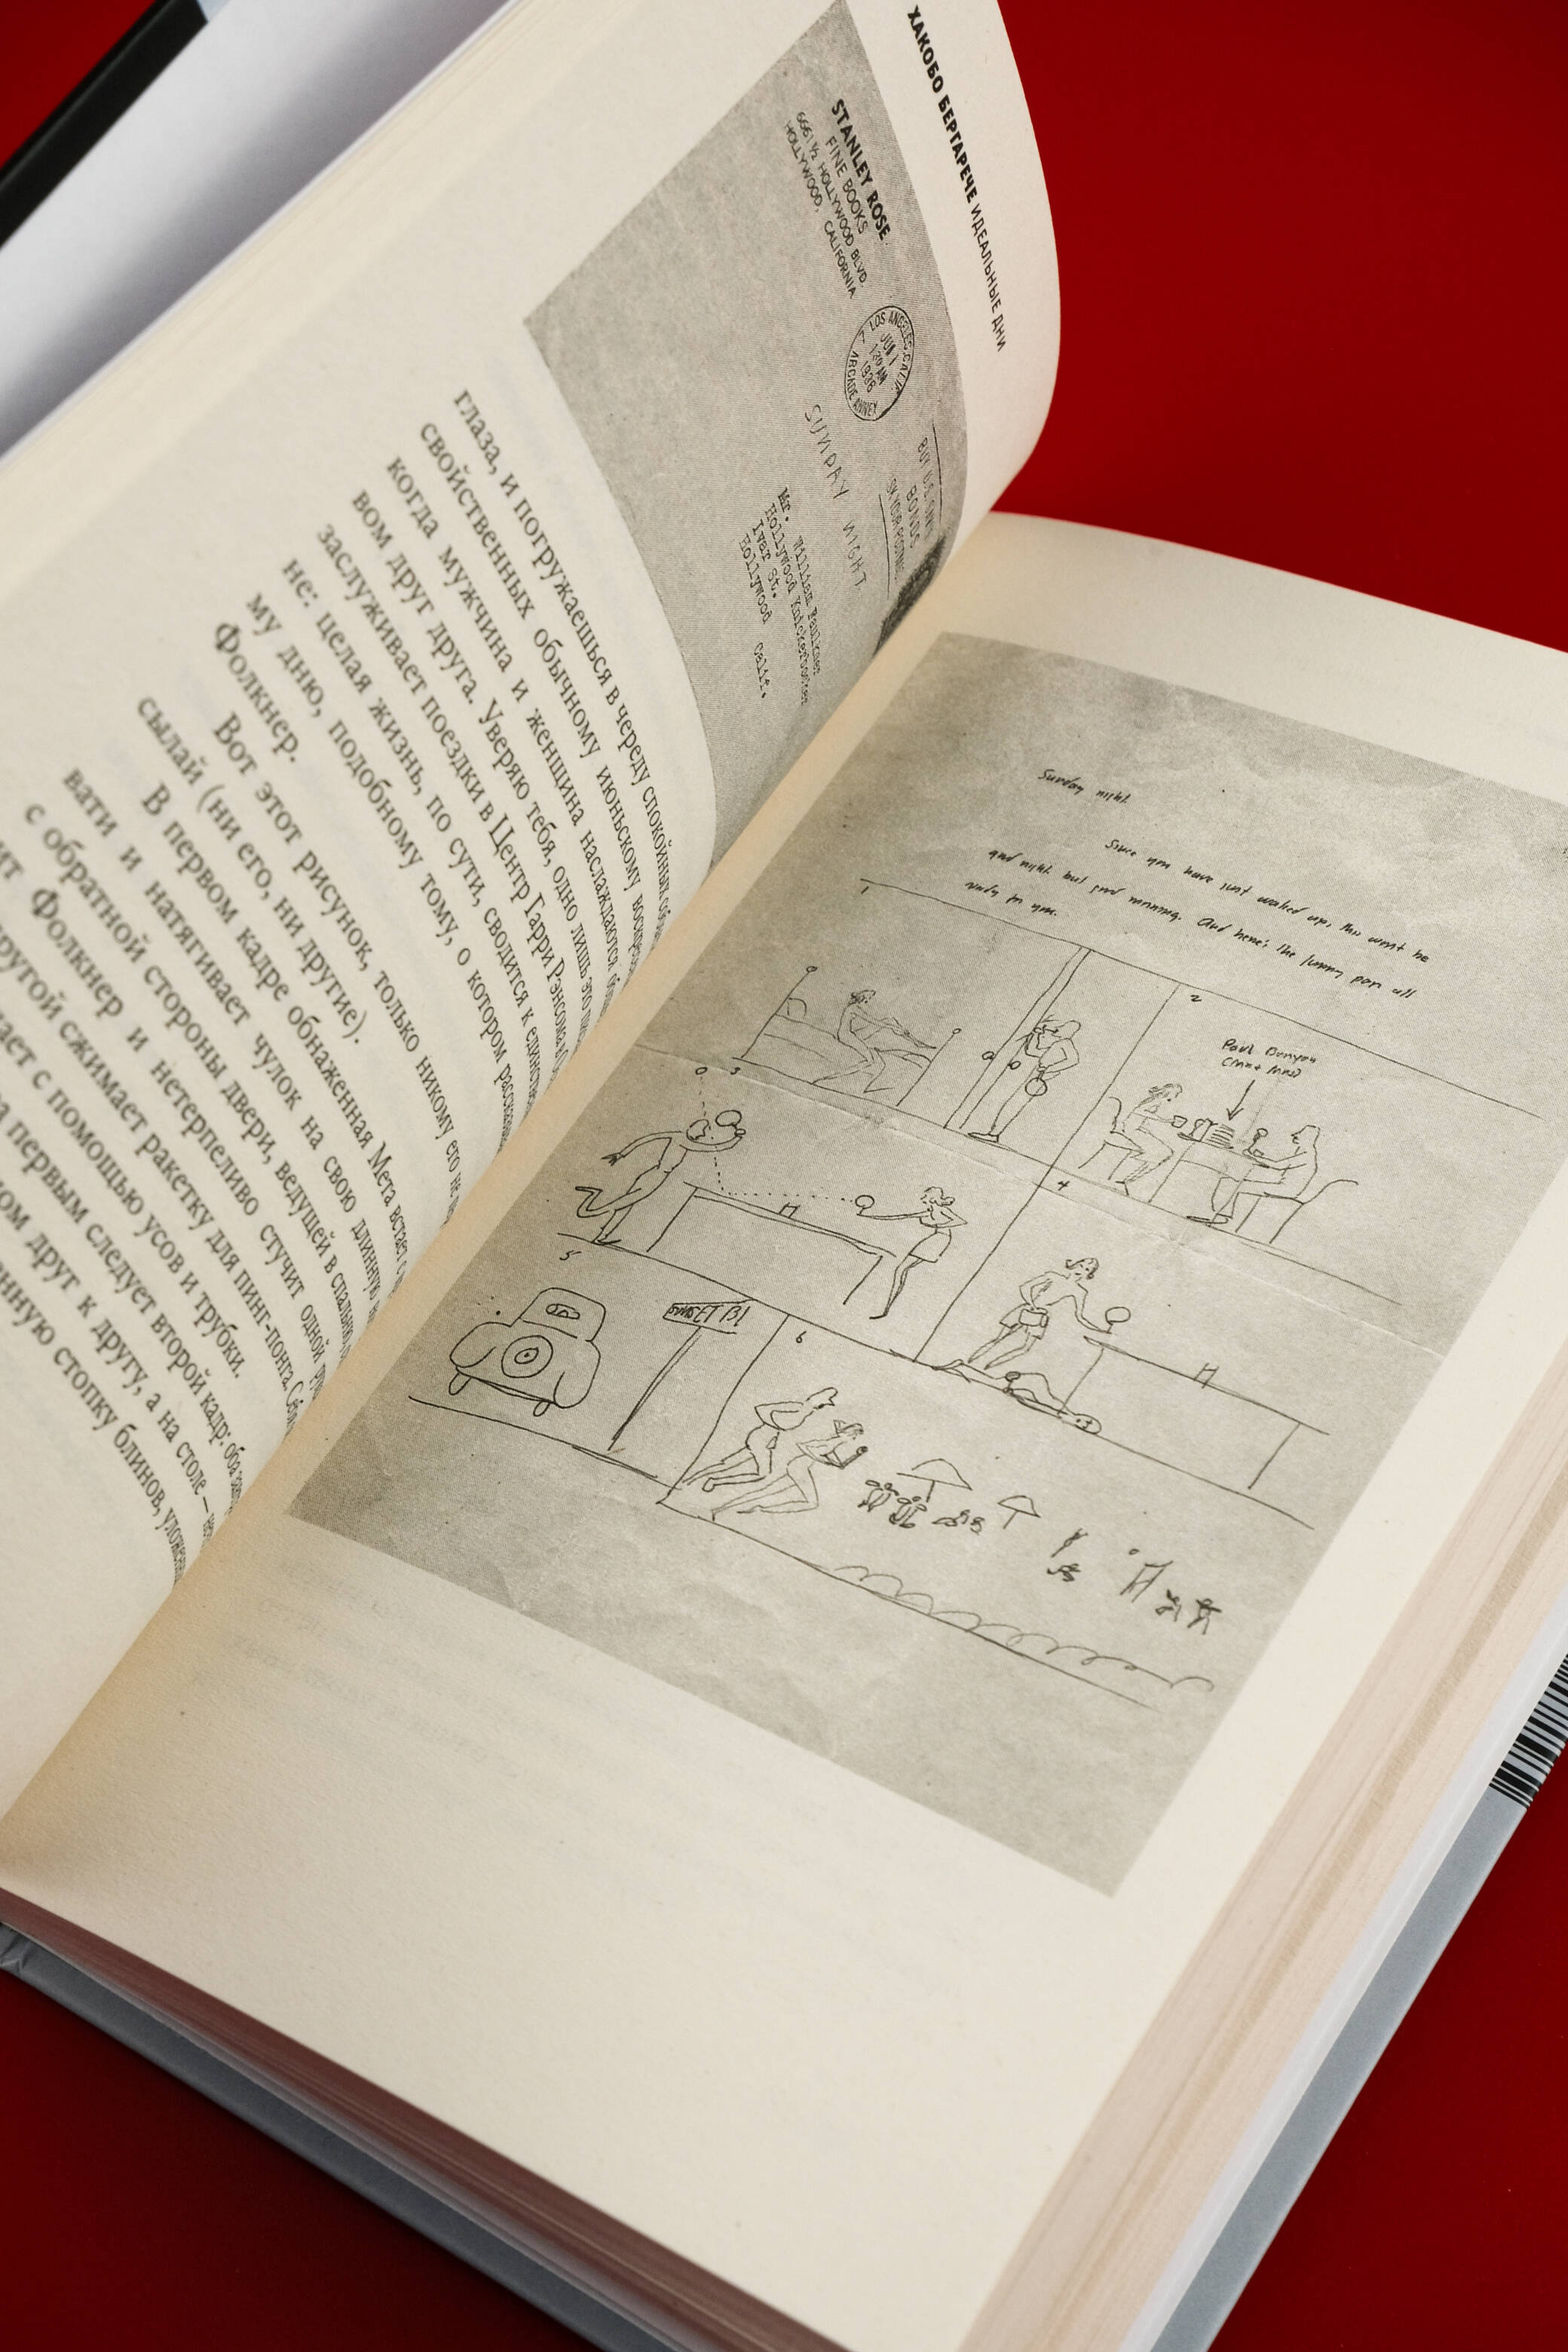 ХАКОБО БЕРГАРЕЧЕ ИДЕАЛЬНЫЕ ДНИ
STANLEY ROSE
FINE BOOKS
6661 ½ HOLLYWOOD BLVD.
HOLLYWOOD, CALIFORNIA
LOS ANGELES, CALIF.
JUN 1
1 30 AM
1936
ARCADE ANNEX
BUY U.S.
BONDS
SUNDAY NIGHT
Mr. William Faulkner
Hollywood Knickerbocker
Ivar St.
Hollywood Calif.
глаза, и погружаешься в череду спокойных
свойственных обычному июньскому
когда мужчина и женщина наслаждаются
вом друг друга. Уверяю тебя, одно лишь это
заслуживает поездки в Центр Гарри Рэнсома
не: целая жизнь, по сути, сводится к
му дню, подобному тому, о котором
Фолкнер.
Вот этот рисунок, только никому его не
сылай (ни его, ни другие).
В первом кадре обнаженная Мета встает с
вати и натягивает чулок на свою длинную
с обратной стороны двери, ведущей в
Фолкнер и нетерпеливо стучит одной
сжимает ракетку для пинг-понга
с помощью усов и трубки.
первым следует второй кадр: оба
друг к другу, а на столе —
стопку блинов,
Sunday night
Since you have just waked up, this wont be
good night but good morning. And here's the funny paper all
ready for you.
1
2
Paul Bunyan
3
4
5
SUNSET Bl
6